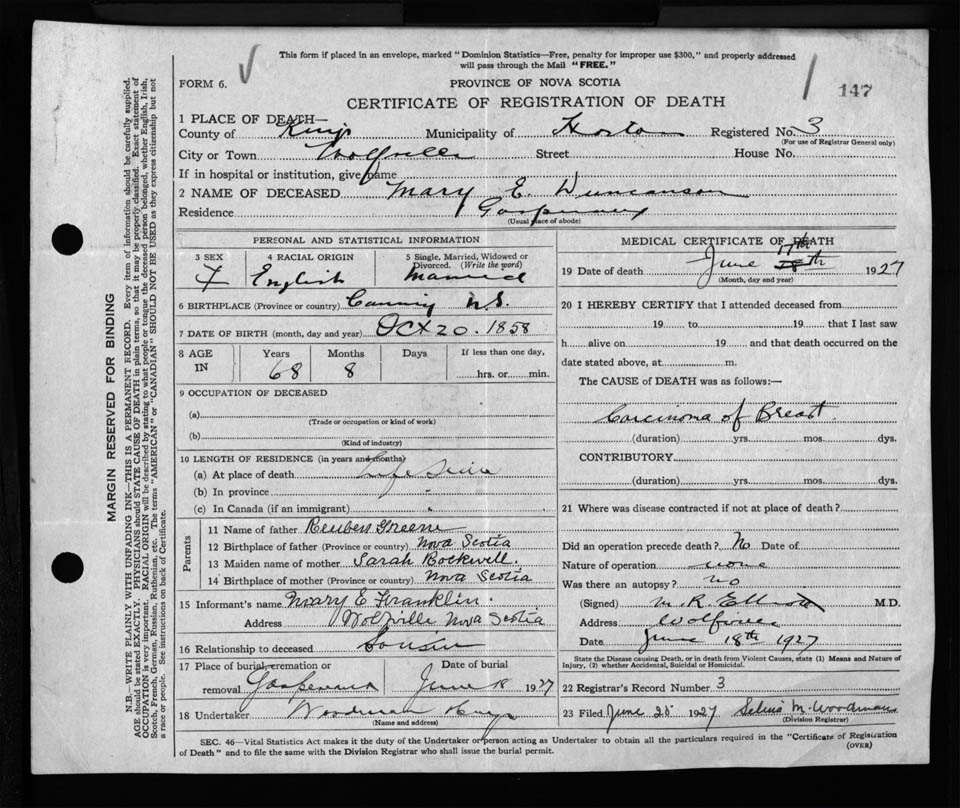 This form if placed in an envelope, marked "Dominion Statistics—Free, penalty for improper use $300," and properly addressed
will pass through the Mail "FREE."
FORM 6.
PROVINCE OF NOVA SCOTIA
147
CERTIFICATE OF REGISTRATION OF DEATH
1 PLACE OF DEATH—
County of Kings Municipality of Horton Registered No. 3
(For use of Registrar General only)
City or Town Wolfville Street House No.
If in hospital or institution, give name
2 NAME OF DECEASED Mary E. Duncanson
Residence Gaspereau
(Usual place of abode)
PERSONAL AND STATISTICAL INFORMATION
3 SEX 4 RACIAL ORIGIN 5 Single, Married, Widowed or Divorced. (Write the word)
F English Married
6 BIRTHPLACE (Province or country) Canning N.S.
7 DATE OF BIRTH (month, day and year) Oct 20. 1858
8 AGE IN Years Months Days If less than one day,
68 8 hrs. or min.
9 OCCUPATION OF DECEASED
(a)
(Trade or occupation or kind of work)
(b)
(Kind of industry)
10 LENGTH OF RESIDENCE (in years and months)
(a) At place of death Life time
(b) In province "
(c) In Canada (if an immigrant) "
Parents
11 Name of father Reuben Greene
12 Birthplace of father (Province or country) Nova Scotia
13 Maiden name of mother Sarah Rockwell.
14 Birthplace of mother (Province or country) Nova Scotia
15 Informant's name Mary E Franklin.
Address Wolfville Nova Scotia
16 Relationship to deceased Cousin
17 Place of burial, cremation or Date of burial
removal Gaspereau June 18 1927
18 Undertaker Woodman
(Name and address)
MEDICAL CERTIFICATE OF DEATH
17th
19 Date of death June 18th 1927
(Month, day and year)
20 I HEREBY CERTIFY that I attended deceased from
19 to 19 that I last saw
h alive on 19 and that death occurred on the
date stated above, at m.
The CAUSE of DEATH was as follows:—
Carcinoma of Breast.
(duration) yrs. mos. dys.
CONTRIBUTORY
(duration) yrs. mos. dys.
21 Where was disease contracted if not at place of death?
Did an operation precede death? No Date of
Nature of operation none
Was there an autopsy? no
(Signed) M. R. Elliott M.D.
Address Wolfville
Date June 18th 1927
State the Disease causing Death, or in death from Violent Causes, state (1) Means and Nature of
Injury, (2) whether Accidental, Suicidal or Homicidal.
22 Registrar's Record Number 3
23 Filed June 25 1927 Selina M. Woodman
(Division Registrar)
SEC. 46—Vital Statistics Act makes it the duty of the Undertaker or person acting as Undertaker to obtain all the particulars required in the "Certificate of Registration
of Death" and to file the same with the Division Registrar who shall issue the burial permit.
(OVER)
MARGIN RESERVED FOR BINDING
N.B.—WRITE PLAINLY WITH UNFADING INK—THIS IS A PERMANENT RECORD. Every item of information should be carefully supplied.
AGE should be stated EXACTLY. PHYSICIANS should STATE CAUSE OF DEATH in plain terms, so that it may be properly classified. Exact statement of
OCCUPATION is very important. RACIAL ORIGIN will be described by stating to what people or tongue the deceased person belonged, whether English, Irish,
Scotch, French, German, Russian, Ruthenian, etc. The terms "AMERICAN" or "CANADIAN" SHOULD NOT BE USED as they express citizenship but not
a race or people. See instructions on back of Certificate.